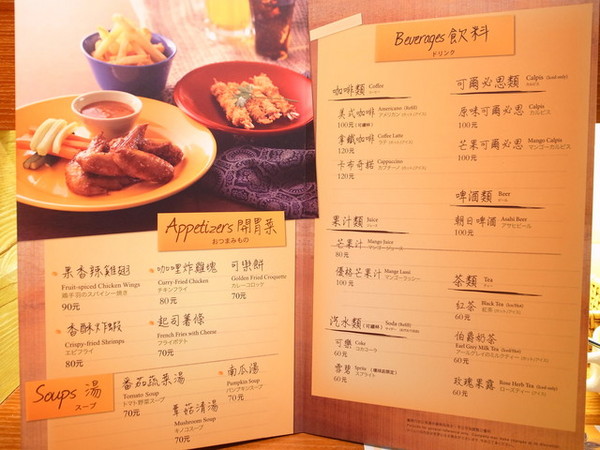 Appetizers 開胃菜
おつまみもの
果香辣雞翅
Fruit-spiced Chicken Wings
鶏手羽のスパイシー焼き
90元
咖哩炸雞塊
Curry-Fried Chicken
チキンフライ
80元
可樂餅
Golden Fried Croquette
カレーコロッケ
70元
香酥炸蝦
Crispy-fried Shrimps
エビフライ
80元
起司薯條
French Fries with Cheese
フライポテト
70元
Soups 湯
スープ
番茄蔬菜湯
Tomato Soup
トマト野菜スープ
70元
南瓜湯
Pumpkin Soup
パンプキンスープ
70元
蕈菇清湯
Mushroom Soup
キノコスープ
70元
Beverages 飲料
ドリンク
咖啡類 Coffee
美式咖啡 Americano (Refill)
アメリカン
100元(可續杯)
拿鐵咖啡 Coffee Latte
120元
卡布奇諾 Cappuccino
120元
果汁類 Juice
芒果汁 Mango Juice
マンゴージュース
80元
優格芒果汁 Mango Lassi
マンゴーラッシー
100元
汽水類(可續杯) Soda (Refill)
可樂 Coke
コカコーラ
60元
雪碧 Sprite
スプライト
60元
可爾必思類 Calpis (Iced-only)
カルピス
原味可爾必思 Calpis
カルピス
100元
芒果可爾必思 Mango Calpis
マンゴーカルピス
100元
啤酒類 Beer
ビール
朝日啤酒 Asahi Beer
アサヒビール
100元
茶類 Tea
ティー
紅茶 Black Tea (Ice/Hot)
60元
伯爵奶茶
Earl Grey Milk Tea (Iced/Hot)
60元
玫瑰果露 Rose Herb Tea (Iced-only)
60元